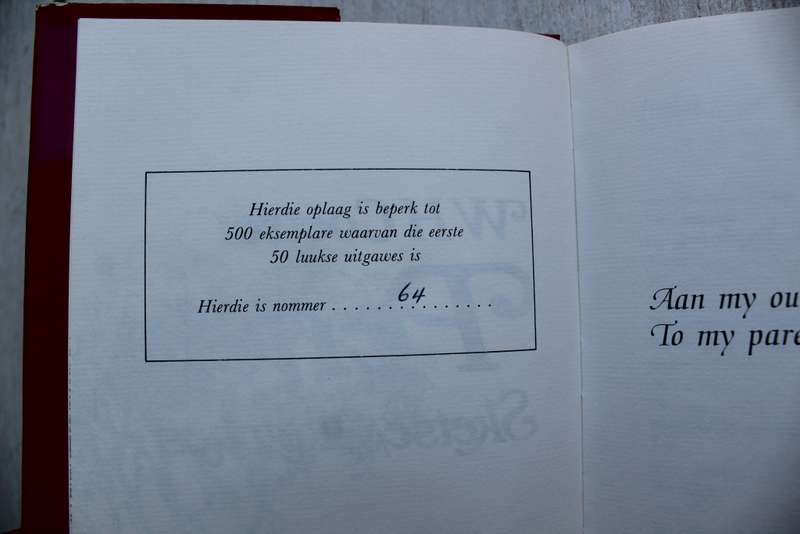 Hierdie oplaag is beperk tot
500 eksemplare waarvan die eerste
50 luukse uitgawes is
Hierdie is nommer . . . . . . 64 . . . . . . . . .
Aan my ou
To my pare